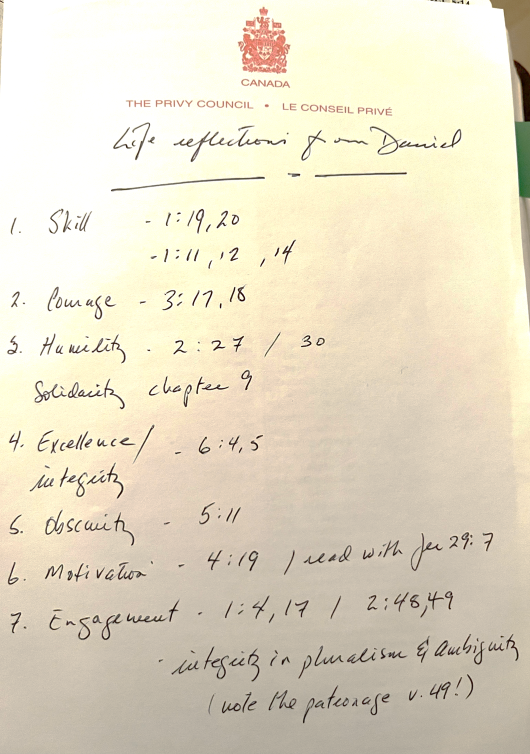 CANADA
THE PRIVY COUNCIL • LE CONSEIL PRIVÉ
Life reflections from Daniel
1. Skill - 1:19,20
- 1:11, 12, 14
2. Courage - 3:17,18
3. Humility - 2:27 / 30
Solidarity chapter 9
4. Excellence/ - 6:4,5
integrity
5. Obscurity - 5:11
6. Motivation - 4:19 / read with Jer 29:7
7. Engagement - 1:4, 17 / 2:48,49
- integrity in pluralism & Ambiguity
(note the patronage v. 49!)